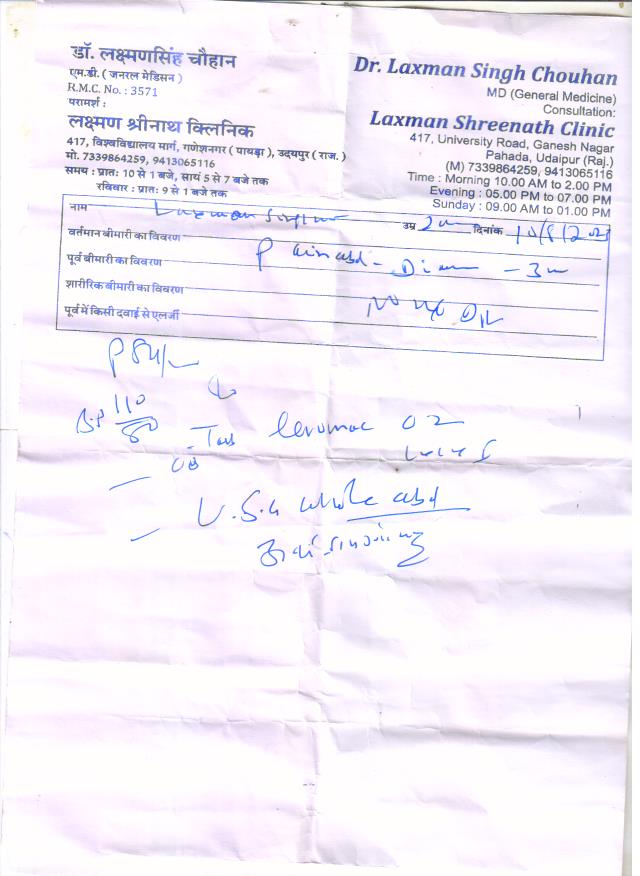 डॉ. लक्ष्मणसिंह चौहान
एम.डी. ( जनरल मेडिसन )
R.M.C. No. : 3571
परामर्श :
लक्ष्मण श्रीनाथ क्लिनिक
417, विश्वविद्यालय मार्ग, गणेशनगर ( पायड़ा ), उदयपुर ( राज. )
मो. 7339864259, 9413065116
समय : प्रातः 10 से 1 बजे, सायं 5 से 7 बजे तक
रविवार : प्रातः 9 से 1 बजे तक
Dr. Laxman Singh Chouhan
MD (General Medicine)
Consultation:
Laxman Shreenath Clinic
417, University Road, Ganesh Nagar
Pahada, Udaipur (Raj.)
(M) 7339864259, 9413065116
Time : Morning 10.00 AM to 2.00 PM
Evening : 05.00 PM to 07.00 PM
Sunday : 09.00 AM to 01.00 PM
नाम Laxman उम्र दिनांक
वर्तमान बीमारी का विवरण Pain abd
पूर्व बीमारी का विवरण
शारीरिक बीमारी का विवरण
पूर्व में किसी दवाई से एलर्जी
BP 110/80
Tab
U.S.G whole abd